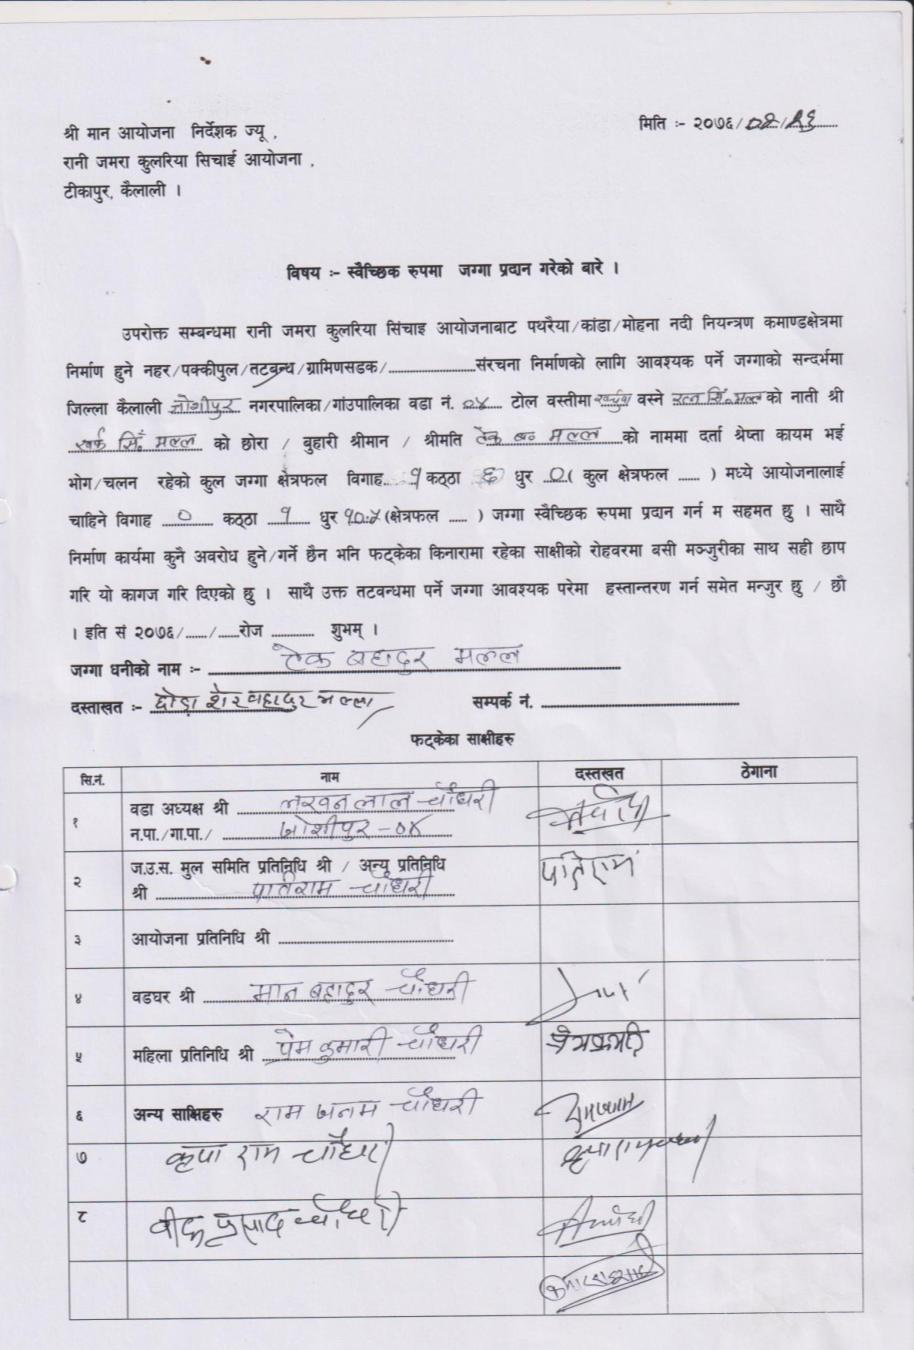 मिति :- २०७६/०२/२६
श्री मान आयोजना निर्देशक ज्यू ,
रानी जमरा कुलरिया सिचाई आयोजना ,
टीकापुर, कैलाली ।
विषय :- स्वैच्छिक रुपमा जग्गा प्रदान गरेको बारे ।
उपरोक्त सम्बन्धमा रानी जमरा कुलरिया सिंचाइ आयोजनाबाट पथरैया/कांडा/मोहना नदी नियन्त्रण कमाण्डक्षेत्रमा
निर्माण हुने नहर/पक्कीपुल/तटबन्ध/ग्रामिणसडक/........................संरचना निर्माणको लागि आवश्यक पर्ने जग्गाको सन्दर्भमा
जिल्ला कैलाली जोशीपुर नगरपालिका/गांउपालिका वडा नं. ०४ टोल वस्तीमा वस्ने रत्न सिं. मल्ल को नाती श्री
खर्क सिं. मल्ल को छोरा / बुहारी श्रीमान / श्रीमति टेक ब० मल्ल को नाममा दर्ता श्रेप्ता कायम भई
भोग/चलन रहेको कुल जग्गा क्षेत्रफल विगाह १ कठ्ठा ६ धुर ०( कुल क्षेत्रफल ...... ) मध्ये आयोजनालाई
चाहिने विगाह ० कठ्ठा १ धुर १०.५ (क्षेत्रफल ..... ) जग्गा स्वैच्छिक रुपमा प्रदान गर्न म सहमत छु । साथै
निर्माण कार्यमा कुनै अवरोध हुने/गर्ने छैन भनि फट्केका किनारामा रहेका साक्षीको रोहवरमा बसी मञ्जुरीका साथ सही छाप
गरि यो कागज गरि दिएको छु । साथै उक्त तटवन्धमा पर्ने जग्गा आवश्यक परेमा हस्तान्तरण गर्न समेत मन्जुर छु / छौ
। इति सं २०७६/....../......रोज ............ शुभम् ।
जग्गा धनीको नाम :- टेक बहादुर मल्ल
दस्ताखत :- छोरा शेर बहादुर मल्ल सम्पर्क नं. ........................
फट्केका साक्षीहरु
सि.नं. नाम दस्तखत ठेगाना
१ वडा अध्यक्ष श्री लखन लाल चौधरी
न.पा./गा.पा./ जोशीपुर - ०४
२ ज.उ.स. मुल समिति प्रतिनिधि श्री / अन्य प्रतिनिधि
श्री पतिराम चौधरी पतिराम
३ आयोजना प्रतिनिधि श्री ........................
४ वडघर श्री मान बहादुर चौधरी
५ महिला प्रतिनिधि श्री प्रेम कुमारी चौधरी प्रेमकुमारी
६ अन्य साक्षिहरु राम जनम चौधरी रामजनम
७ कृपा राम चौधरी
८ प्रसाद चौधरी